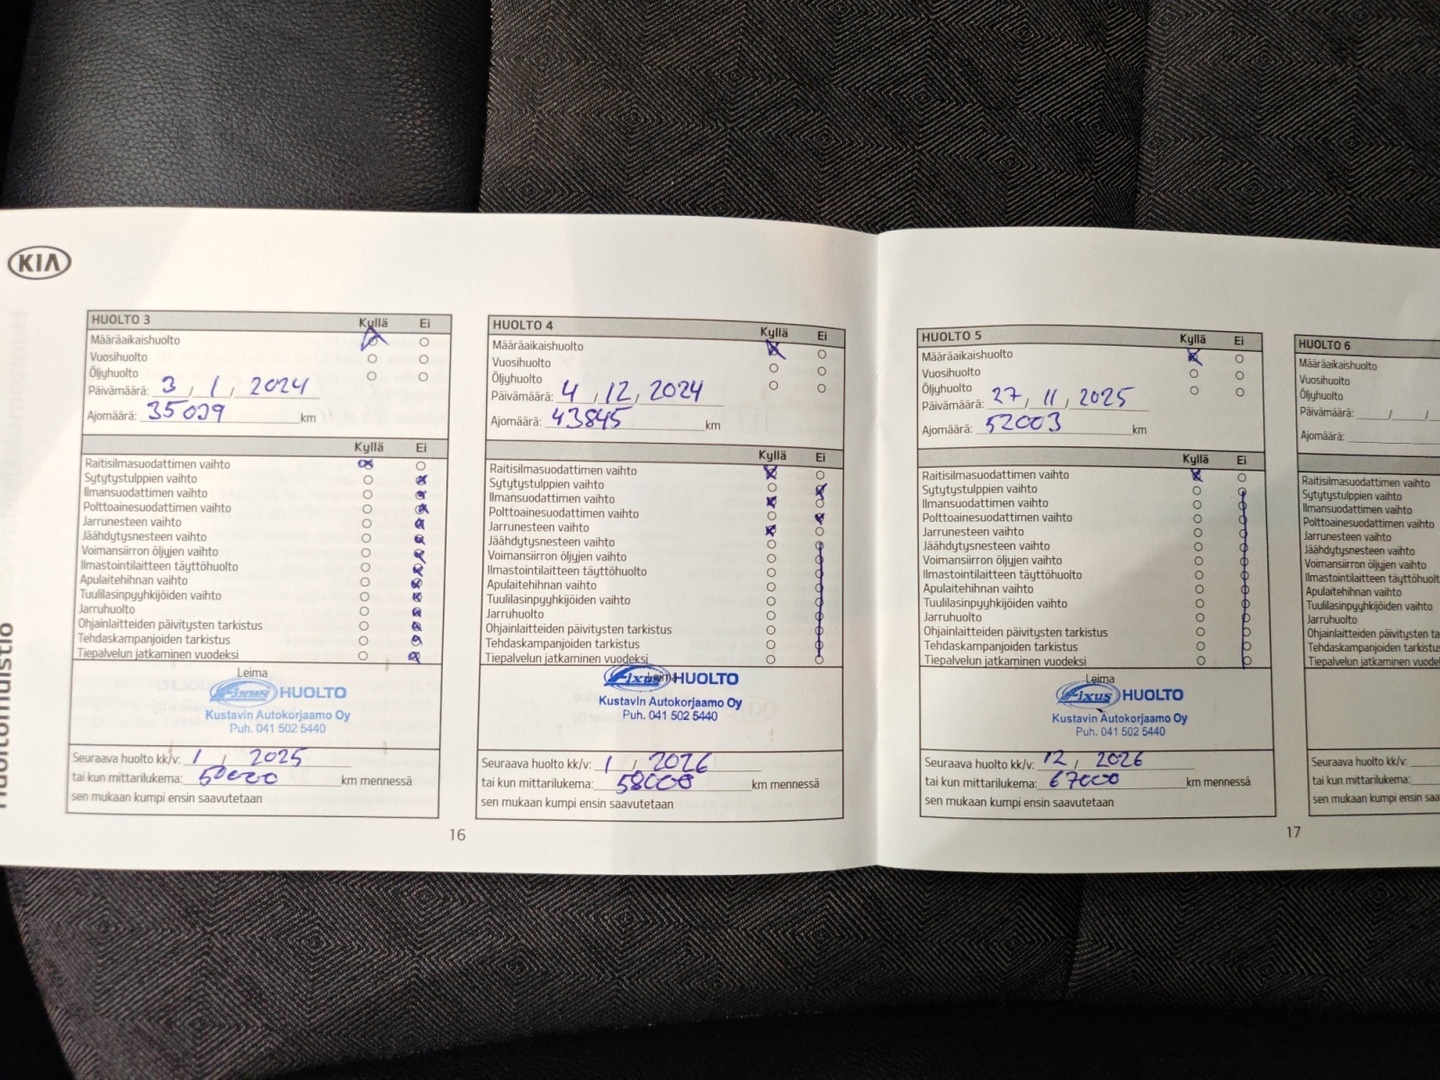 KIA
HUOLTO 3 Kyllä Ei
Määräaikaishuolto
Vuosihuolto
Öljyhuolto
Päivämäärä: 3 / 1 / 2024
Ajomäärä: 35039 km
Kyllä Ei
Raitisilmasuodattimen vaihto
Sytytystulppien vaihto
Ilmansuodattimen vaihto
Polttoainesuodattimen vaihto
Jarrunesteen vaihto
Jäähdytysnesteen vaihto
Voimansiirron öljyjen vaihto
Ilmastointilaitteen täyttöhuolto
Apulaitehihnan vaihto
Tuulilasinpyyhkijöiden vaihto
Jarruhuolto
Ohjainlaitteiden päivitysten tarkistus
Tehdaskampanjoiden tarkistus
Tiepalvelun jatkaminen vuodeksi
Leima
Fixus HUOLTO
Kustavin Autokorjaamo Oy
Puh. 041 502 5440
Seuraava huolto kk/v: 1 / 2025
tai kun mittarilukema: 50000 km mennessä
sen mukaan kumpi ensin saavutetaan
16
HUOLTO 4 Kyllä Ei
Määräaikaishuolto
Vuosihuolto
Öljyhuolto
Päivämäärä: 4 / 12 / 2024
Ajomäärä: 43845 km
Kyllä Ei
Raitisilmasuodattimen vaihto
Sytytystulppien vaihto
Ilmansuodattimen vaihto
Polttoainesuodattimen vaihto
Jarrunesteen vaihto
Jäähdytysnesteen vaihto
Voimansiirron öljyjen vaihto
Ilmastointilaitteen täyttöhuolto
Apulaitehihnan vaihto
Tuulilasinpyyhkijöiden vaihto
Jarruhuolto
Ohjainlaitteiden päivitysten tarkistus
Tehdaskampanjoiden tarkistus
Tiepalvelun jatkaminen vuodeksi
Leima
Fixus HUOLTO
Kustavin Autokorjaamo Oy
Puh. 041 502 5440
Seuraava huolto kk/v: 1 / 2026
tai kun mittarilukema: 58000 km mennessä
sen mukaan kumpi ensin saavutetaan
HUOLTO 5 Kyllä Ei
Määräaikaishuolto
Vuosihuolto
Öljyhuolto
Päivämäärä: 27 / 11 / 2025
Ajomäärä: 52003 km
Kyllä Ei
Raitisilmasuodattimen vaihto
Sytytystulppien vaihto
Ilmansuodattimen vaihto
Polttoainesuodattimen vaihto
Jarrunesteen vaihto
Jäähdytysnesteen vaihto
Voimansiirron öljyjen vaihto
Ilmastointilaitteen täyttöhuolto
Apulaitehihnan vaihto
Tuulilasinpyyhkijöiden vaihto
Jarruhuolto
Ohjainlaitteiden päivitysten tarkistus
Tehdaskampanjoiden tarkistus
Tiepalvelun jatkaminen vuodeksi
Leima
Fixus HUOLTO
Kustavin Autokorjaamo Oy
Puh. 041 502 5440
Seuraava huolto kk/v: 12 / 2026
tai kun mittarilukema: 67000 km mennessä
sen mukaan kumpi ensin saavutetaan
17
HUOLTO 6
Määräaikaishuolto
Vuosihuolto
Öljyhuolto
Päivämäärä: / /
Ajomäärä:
Raitisilmasuodattimen vaihto
Sytytystulppien vaihto
Ilmansuodattimen vaihto
Polttoainesuodattimen
Jarrunesteen vaihto
Jäähdytysnesteen vaihto
Voimansiirron öljyjen vaihto
Ilmastointilaitteen täyttöhuolt
Apulaitehihnan vaihto
Tuulilasinpyyhkijöiden
Jarruhuolto
Ohjainlaitteiden päivitysten ta
Tehdaskampanjoiden tarkist
Tiepalvelun jatkaminen
Seuraava huolto kk/v:
tai kun mittarilukema:
sen mukaan kumpi ensin saa